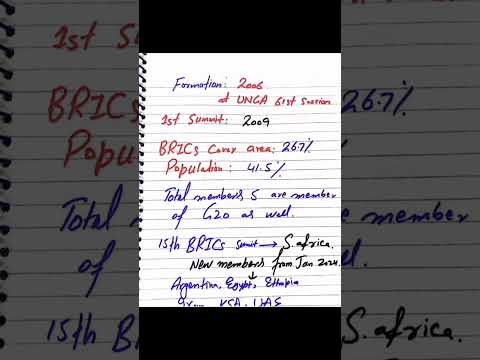 Formation: 2006
at UNGA 61st Session
1st Summit: 2009
BRICs Cover area: 26.7%
Population: 41.5%
Total members 5 are member
of G20 as well.
15th BRICs Summit → S.africa.
New members from Jan 2024
↓
Argentina, Egypt, Ethopia